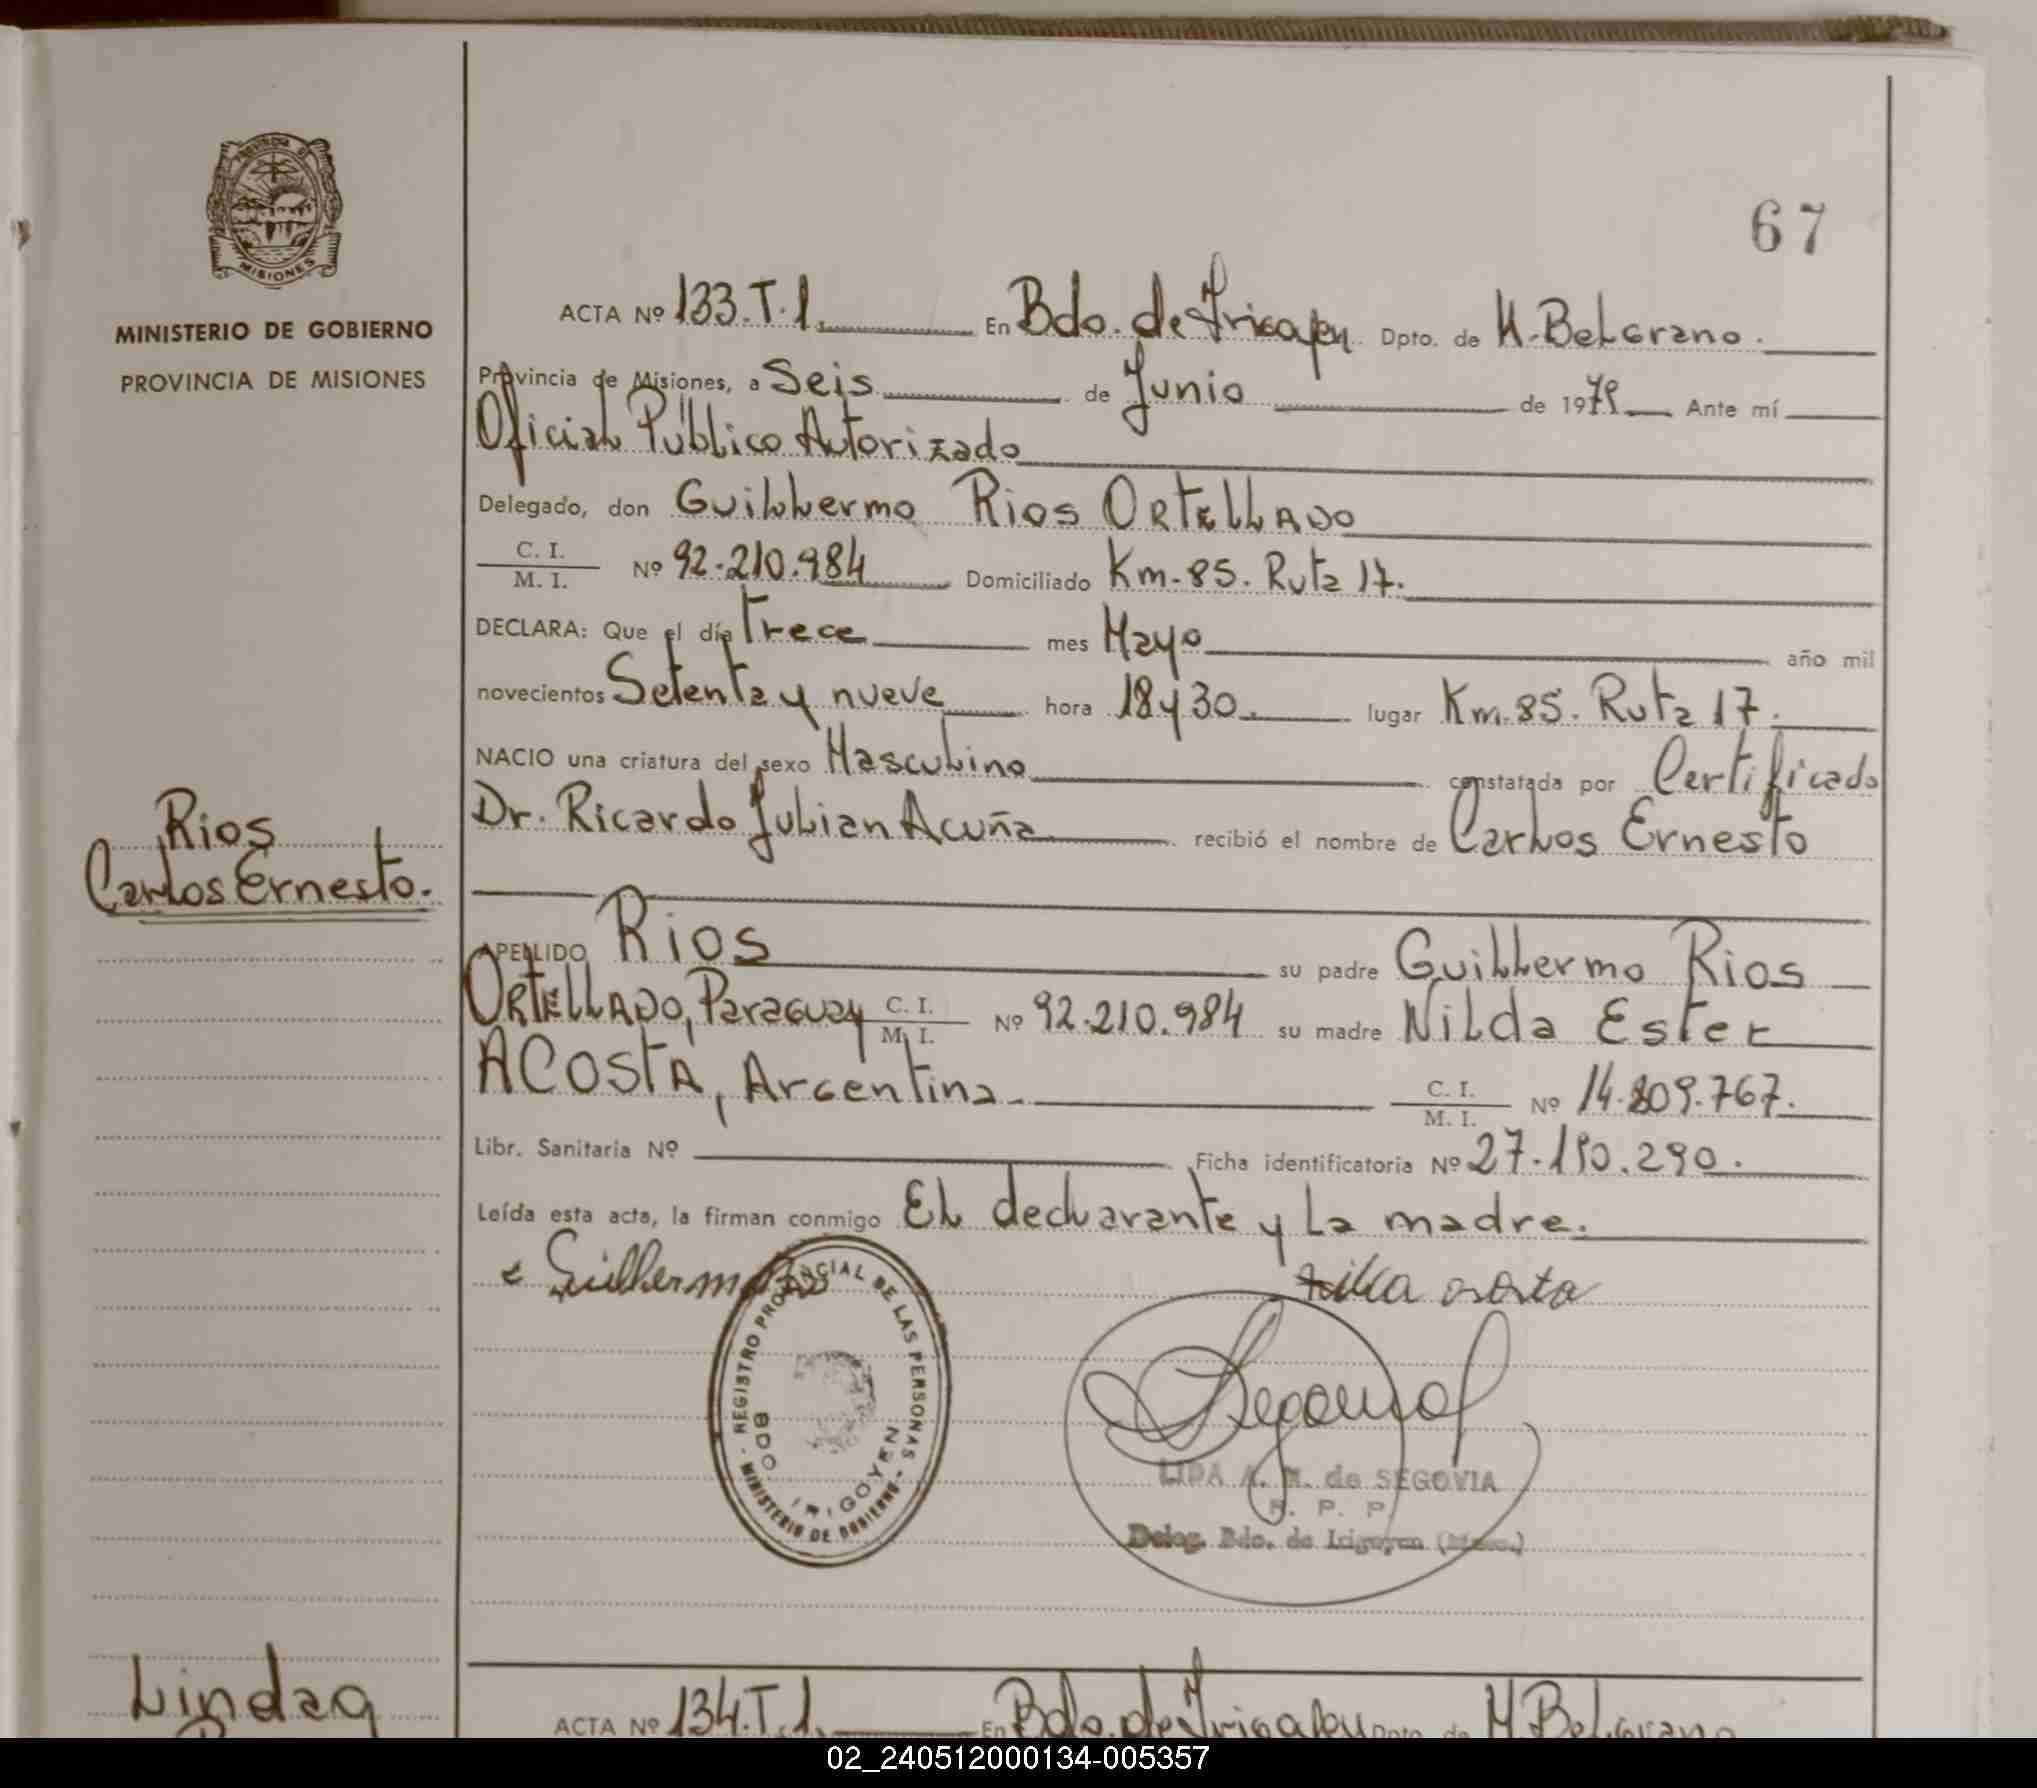 PROVINCIA DE
MISIONES
MINISTERIO DE GOBIERNO
PROVINCIA DE MISIONES
67
ACTA Nº 133.T.1. En Bdo. de Irigoyen Dpto. de M. Belgrano.
Provincia de Misiones, a Seis de Junio de 1979 Ante mí
Oficial Público Autorizado
Delegado, don Guillermo Rios ORTELLADO
C. I.
M. I. Nº 92.210.984 Domiciliado Km. 85. Ruta 17.
DECLARA: Que el día Trece mes Mayo año mil
novecientos Setenta y nueve hora 18 y 30. lugar Km. 85. Ruta 17.
NACIO una criatura del sexo Masculino constatada por Certificado
Dr. Ricardo Julian Acuña recibió el nombre de Carlos Ernesto
Rios
Carlos Ernesto.
APELLIDO Rios su padre Guillermo Rios
ORTELLADO, Paraguay C. I.
M. I. Nº 92.210.984 su madre Nilda Ester
ACOSTA, Argentina C. I.
M. I. Nº 14.809.767.
Libr. Sanitaria Nº Ficha identificatoria Nº 27.190.290.
Leída esta acta, la firman conmigo El declarante y La madre.
Guillermo
REGISTRO PROVINCIAL DE LAS PERSONAS
BDO. IRIGOYEN
- MINISTERIO DE GOBIERNO -
LIDA A. M. de SEGOVIA
R. P. P.
Deleg. Bdo. de Irigoyen (Mnes.)
Lindao
ACTA Nº 134.T.1. En Bdo. de Irigoyen Dpto. de M. Belgrano
02_240512000134-005357